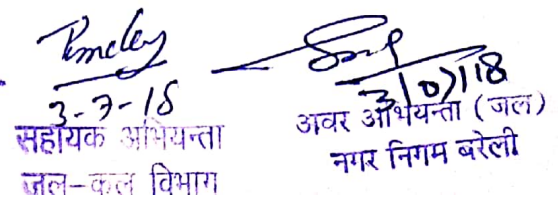 3-7-18
सहायक अभियन्ता
जल-कल विभाग
3/07/18
अवर अभियन्ता (जल)
नगर निगम बरेली